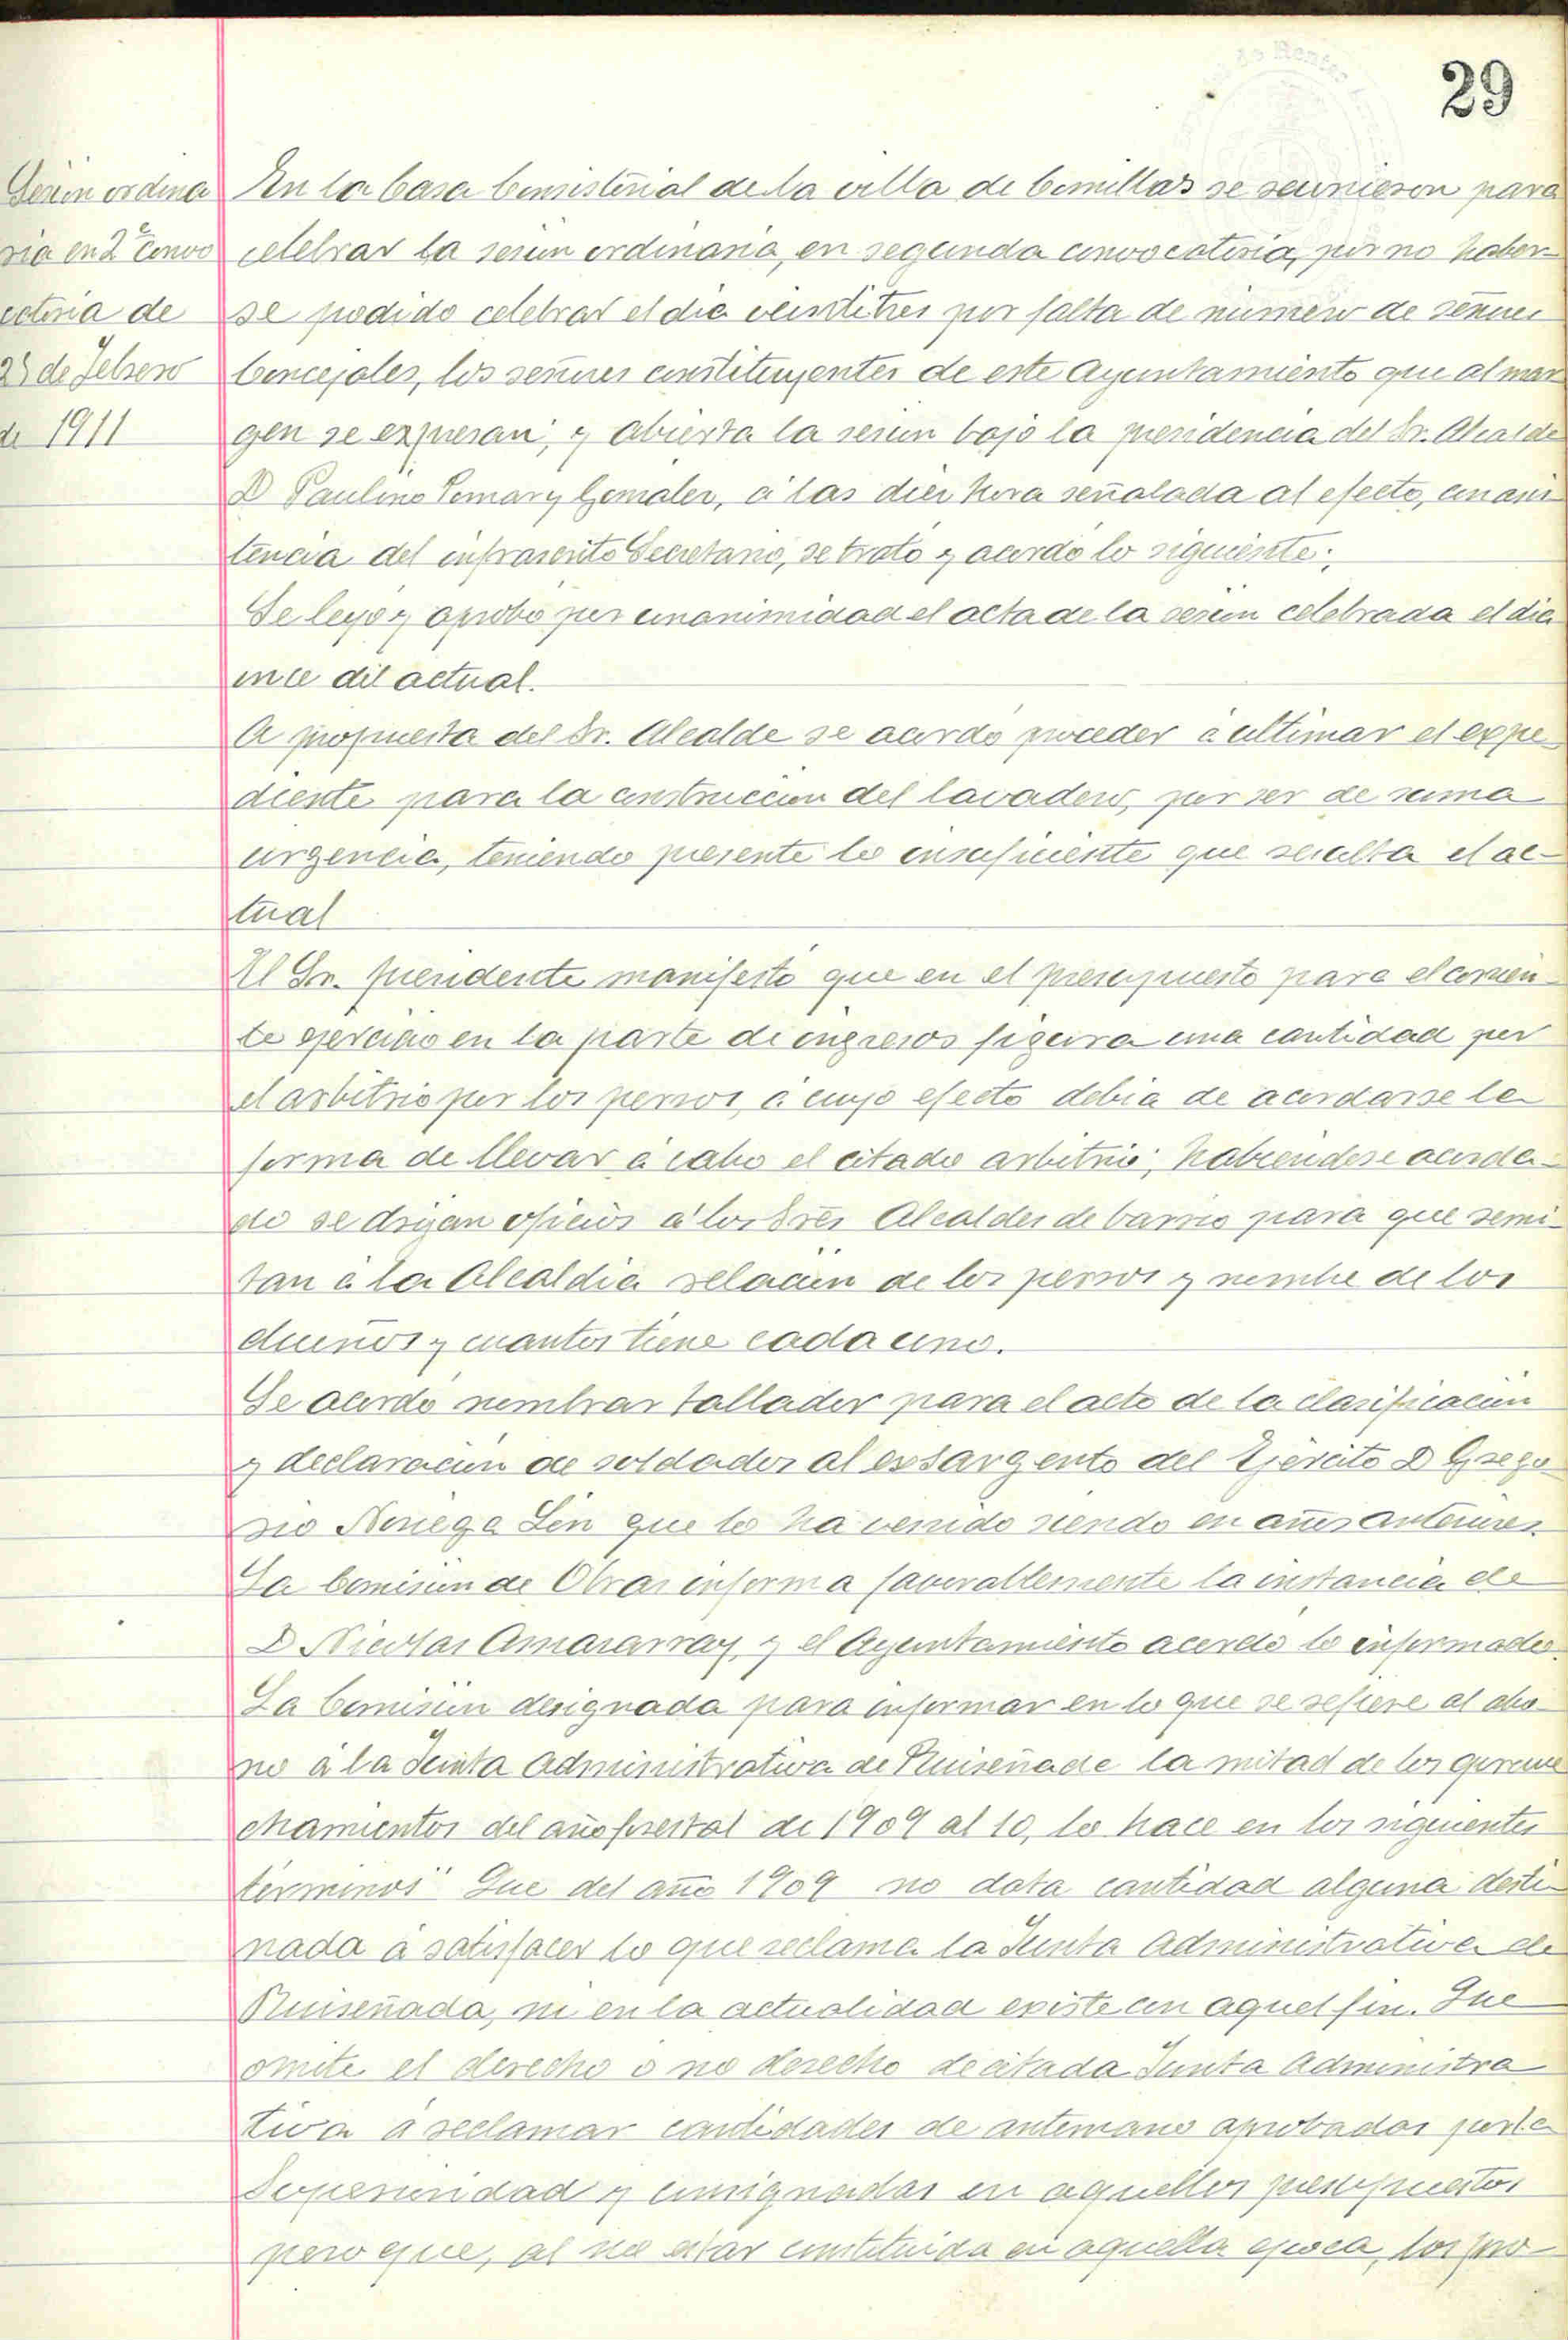 29
Sesión ordina
ria en 2ª convo
catoria de
25 de Febrero
de 1911
En la Casa Consistorial de la villa de Comillas se reunieron para
celebrar la sesión ordinaria, en segunda convocatoria, por no haber
se podido celebrar el dia veintitres por falta de número de señores
Concejales, los señores constituyentes de este Ayuntamiento que al mar
gen se expresan; y abierta la sesión bajo la presidencia del Sr. Alcalde
D Paulino, á las diez hora señalada al efecto, con asis
tencia del infrascrito Secretario, se trató y acordó lo siguiente:
Se leyó y aprobó por unanimidad el acta de la sesión celebrada el dia
once del actual.
A propuesta del Sr. Alcalde se acordó proceder á ultimar el expe
diente para la construcción del lavadero, por ser de suma
urgencia, teniendo presente lo insuficiente que resulta el ac-
tual
El Sr. presidente manifestó que en el presupuesto para el corrien
te ejercicio en la parte de ingresos figura una cantidad por
el arbitrio por los perros, á cuyo efecto debia de acordarse la
forma de llevar á cabo el citado arbitrio; habiendose acorda-
do se dirijan oficios á los Sres Alcaldes de barrio para que remi-
tan á la Alcaldia relación de los perros y nombre de los
dueños y cuantos tiene cada uno.
Se acordó nombrar tallador para el acto de la clasificación
y declaración de soldados al exsargento del Ejército D Grego
rio Noriega que lo ha venido siendo en años anteriores.
La Comisión de Obras informa favorablemente la instancia de
D Nicolas y el Ayuntamiento acordó lo informado.
La Comisión designada para informar en lo que se refiere al abo
no á la Junta Administrativa de Ruiseñada de la mitad de los aprove
chamientos del año forestal de 1909 al 10, lo hace en los siguientes
términos" Que del año 1909 no data cantidad alguna desti
nada á satisfacer lo que reclama la Junta Administrativa de
Ruiseñada, ni en la actualidad existe con aquel fin. Que
omite el derecho ó no derecho de citada Junta Administra
tiva á reclamar cantidades de antemano aprobadas por la
Superioridad y consignadas en aquellos presupuestos
pero que, al no estar constituida en aquella época, los pro-